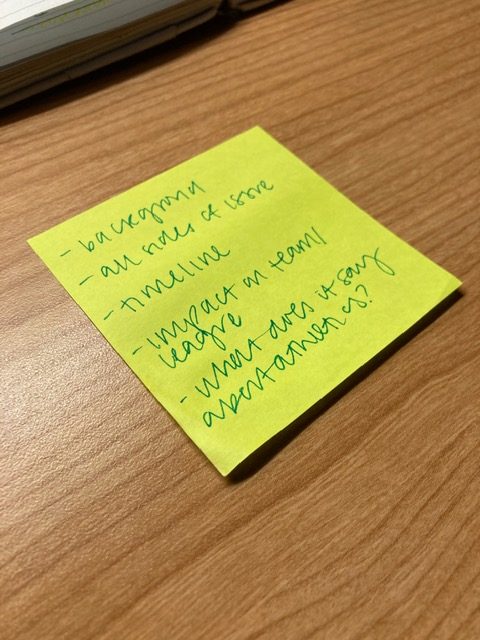 - background
- all sides of issue
- timeline
- impact on team/
league
- what does it say
about athletics?